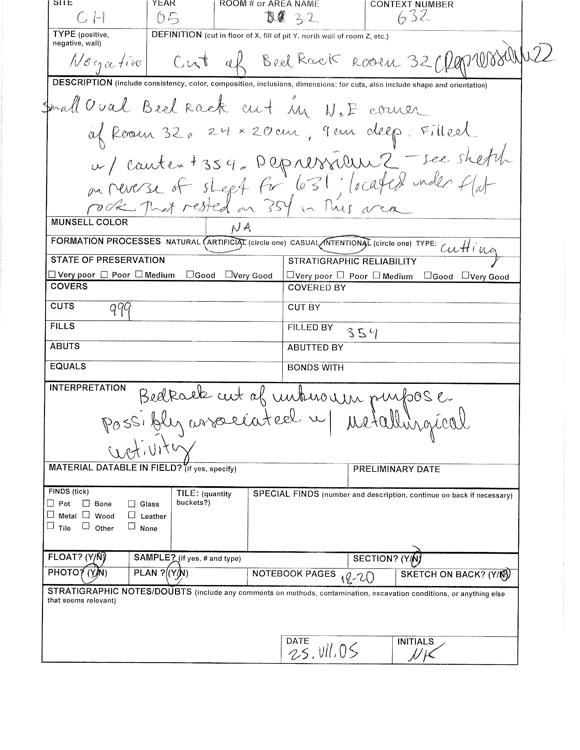 SITE YEAR ROOM # or AREA NAME CONTEXT NUMBER
CH 05 32 632
TYPE (positive, negative, wall) DEFINITION (cut in floor of X, fill of pit Y, north wall of room Z, etc.)
Negative Cut of BedRock room 32 (Depression 2)
DESCRIPTION (include consistency, color, composition, inclusions, dimensions; for cuts, also include shape and orientation)
Small Oval BedRock cut in N.E corner
of Room 32. 24 x 20cm, 9cm deep. Filled
w/ context 354. Depression 2 - see sketch
on reverse of sheet for 631; located under flat
rock that rested on 354 in this area
MUNSELL COLOR NA
FORMATION PROCESSES NATURAL / ARTIFICIAL (circle one) CASUAL / INTENTIONAL (circle one) TYPE: Cutting
STATE OF PRESERVATION STRATIGRAPHIC RELIABILITY
☐Very poor ☐ Poor ☐ Medium ☐Good ☐Very Good ☐Very poor ☐ Poor ☐ Medium ☐Good ☐Very Good
COVERS COVERED BY
CUTS 999 CUT BY
FILLS FILLED BY 354
ABUTS ABUTTED BY
EQUALS BONDS WITH
INTERPRETATION BedRock cut of unknown purpose
possibly associated w/ metallurgical
activity
MATERIAL DATABLE IN FIELD? (if yes, specify) PRELIMINARY DATE
FINDS (tick) TILE: (quantity buckets?) SPECIAL FINDS (number and description, continue on back if necessary)
☐ Pot ☐ Bone ☐ Glass
☐ Metal ☐ Wood ☐ Leather
☐ Tile ☐ Other ☐ None
FLOAT? (Y/N) SAMPLE? (if yes, # and type) SECTION? (Y/N)
PHOTO? (Y/N) PLAN ? (Y/N) NOTEBOOK PAGES 18-20 SKETCH ON BACK? (Y/N)
STRATIGRAPHIC NOTES/DOUBTS (include any comments on methods, contamination, excavation conditions, or anything else
that seems relevant)
DATE INITIALS
25.VII.05 NK